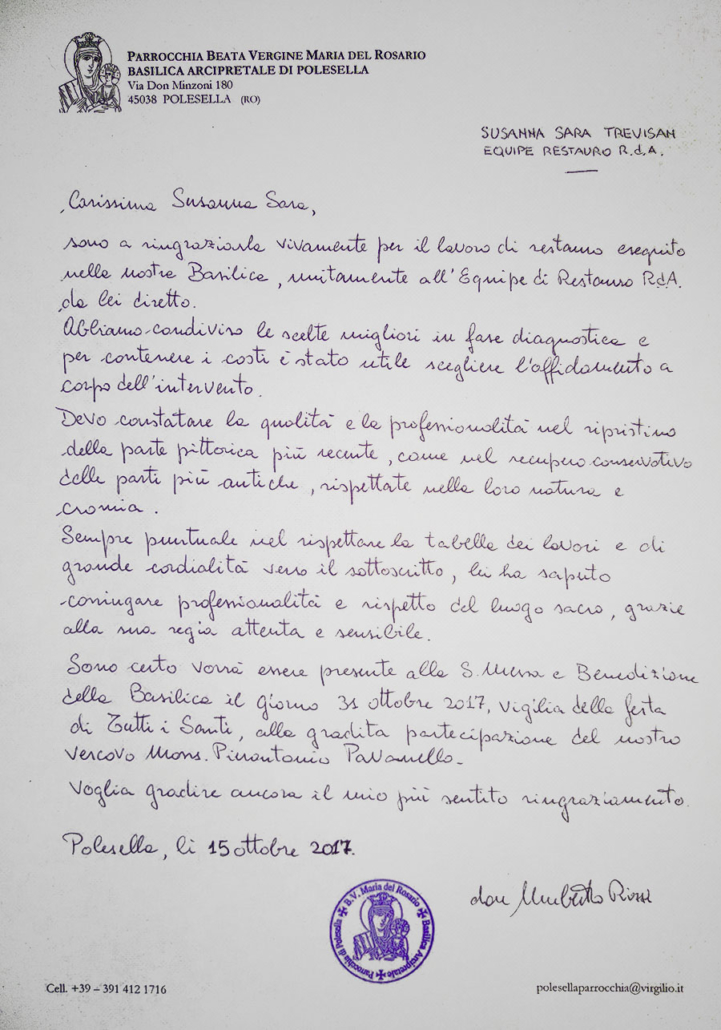 PARROCCHIA BEATA VERGINE MARIA DEL ROSARIO
BASILICA ARCIPRETALE DI POLESELLA
Via Don Minzoni 180
45038 POLESELLA (RO)
SUSANNA SARA TREVISAN
EQUIPE RESTAURO R.d.A.
Carissima Susanna Sara,
sono a ringraziarla vivamente per il lavoro di restauro eseguito
nella nostra Basilica, unitamente all'Equipe di Restauro RdA.
da lei diretto.
Abbiamo condiviso le scelte migliori in fase diagnostica e
per contenere i costi è stato utile scegliere l'affidamento a
corpo dell'intervento.
Devo constatare la qualità e la professionalità nel ripristino
della parte pittorica più recente, come nel recupero conservativo
delle parti più antiche, rispettate nella loro natura e
cromia.
Sempre puntuale nel rispettare la tabella dei lavori e di
grande cordialità verso il sottoscritto, lei ha saputo
coniugare professionalità e rispetto del luogo sacro, grazie
alla sua regia attenta e sensibile.
Sono certo vorrà essere presente alla S. Messa e Benedizione
della Basilica il giorno 31 ottobre 2017, vigilia della festa
di Tutti i Santi, alla gradita partecipazione del nostro
Vescovo Mons. Pierantonio Pavanello.
Voglia gradire ancora il mio più sentito ringraziamento.
Polesella, lì 15 ottobre 2017.
don Umberto Rizzi
B.V. Maria del Rosario
Basilica Arcipretale
Parrocchia di Polesella
Cell. +39 – 391 412 1716
polesellaparrocchia@virgilio.it